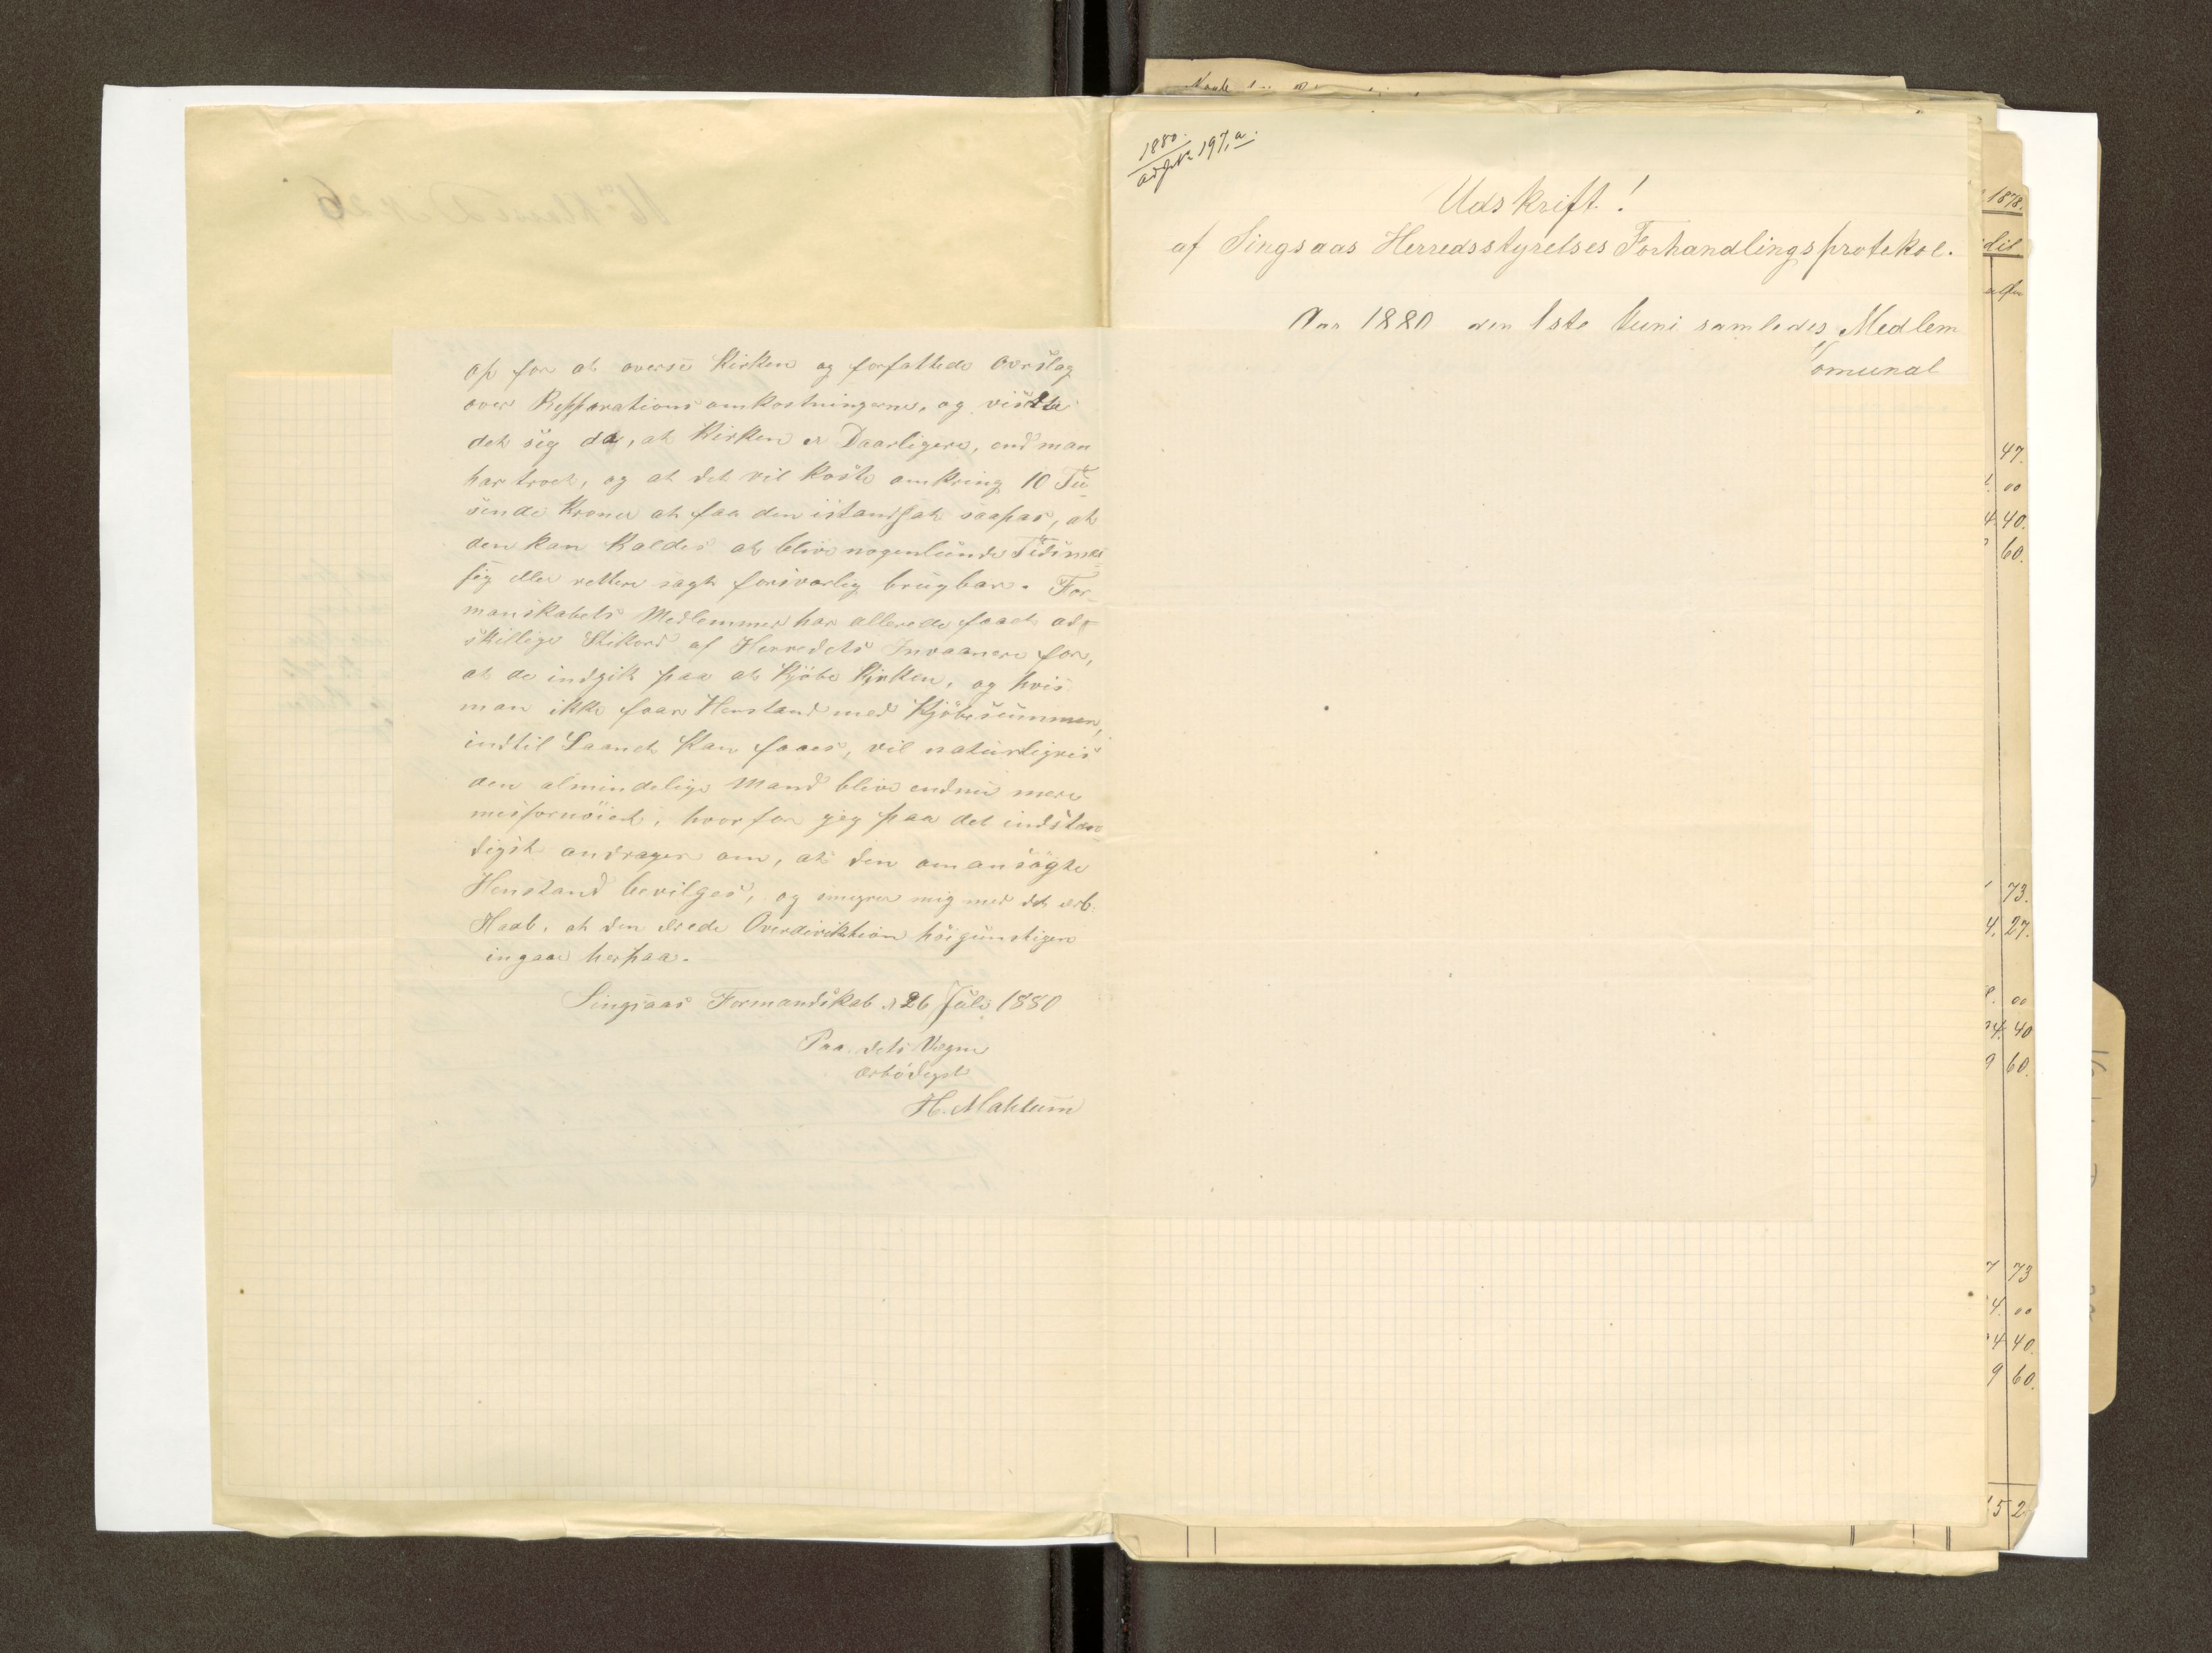 op for at overse Kirken og forfattede Overslag
over Repparationsomkostningerne, og viste
det sig da, at Kirken er Daarligere, end man
har troet, og at det vil koste omkring 10 Tu-
sende Kroner at faa den istandsat saapas, at
den kan kaldes at blive nogenlunde Tidsmæs-
sig eller rettere sagt forsvarlig brugbar. For-
manskabets Medlemmer har allerede faaet ad-
skillige Stikord af Herredets Invaanere for,
at de indgik paa at Kjöbe Kirken, og hvis
man ikke faar Henstand med Kjöbesummen,
indtil Laanet kan faaes, vil naturligvis
den almindelige Mand blive endnu mere
misfornöiet, hvorfor jeg paa det indstæn-
digst andrager om, at den omansögte
Henstand bevilges, og smigrer mig med det ærb.
Haab, at den ærede Overdirektion höigunstigen
ingaar herpaa.
Singsaas Formandskab d 26 Juli 1880
Paa dets Vegne
ærbödigst
H. Maktum
1880.
197, a.
Udskrift!
af Singsaas Herredsstyrelses Forhandlingsprotokol.
Aar 1880 den 1ste Juni samledes Medlem
omunal
1878.
dit
47.
00
4 40.
60.
73.
4. 27.
00
4. 40
9 60.
7 73
4. 00
4 40.
9 60.
5 2